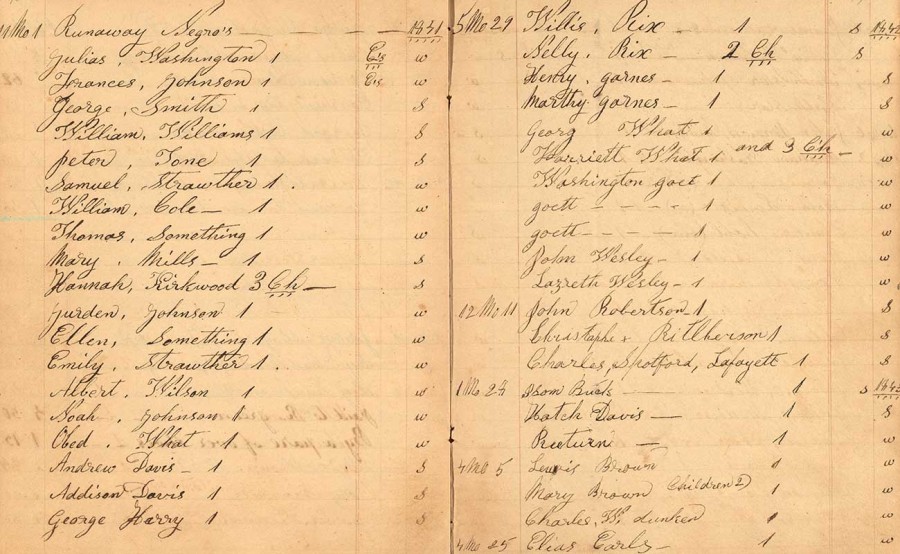 11 Mo 1 Runaway Negro's — — — — 1841
Julias, Washington 1 Cis w
Frances, Johnson 1 Cis w
George, Smith 1 S
William, Williams 1 S
peter, Tone 1 S
Samuel, Strawther 1. w
William, Cole — 1 w
Thomas, Something 1 w
Mary, Mills — 1 S
Hannah, Kirkwood 3 Ch — S
Jurden, Johnson 1 w
Ellen, Something 1 w
Emily, Strawther 1. w
Albert, Wilson 1 w
Noah, Johnson 1 w
Obed, What 1 w
Andrew Davis — 1 S
Addison Davis 1 S
George Harry 1 S
5 Mo 29 Willis, Rix — 1 S 1842
Nelly, Rix — 2 Ch S
Henry, garnes — 1 S
Marthy garnes — 1 S
Georg What 1 w
Harriett What 1 and 3 Ch — w
Washington goet 1 w
goett - - - - 1 w
goett - - - - 1 w
John Wesley — 1 w
Lazreth Wesley — 1 w
12 Mo 11 John Robertson — 1 S
Christophe + Ritlberson 1 S
Charles, Spotford, Lafayett 1 S
1 Mo 24 Isom Buck — 1 S 1843
Hatch Davis — 1 S
Reeturn — 1 w
4 Mo 5 Lewis Brown 1 w
Mary Brown Children 2) 1 w
Charles, W. dunken 1 w
4 Mo 25 Elias Earls — 1 w